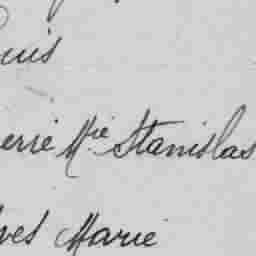 ouis
erre Mie Stanislas
ves Marie